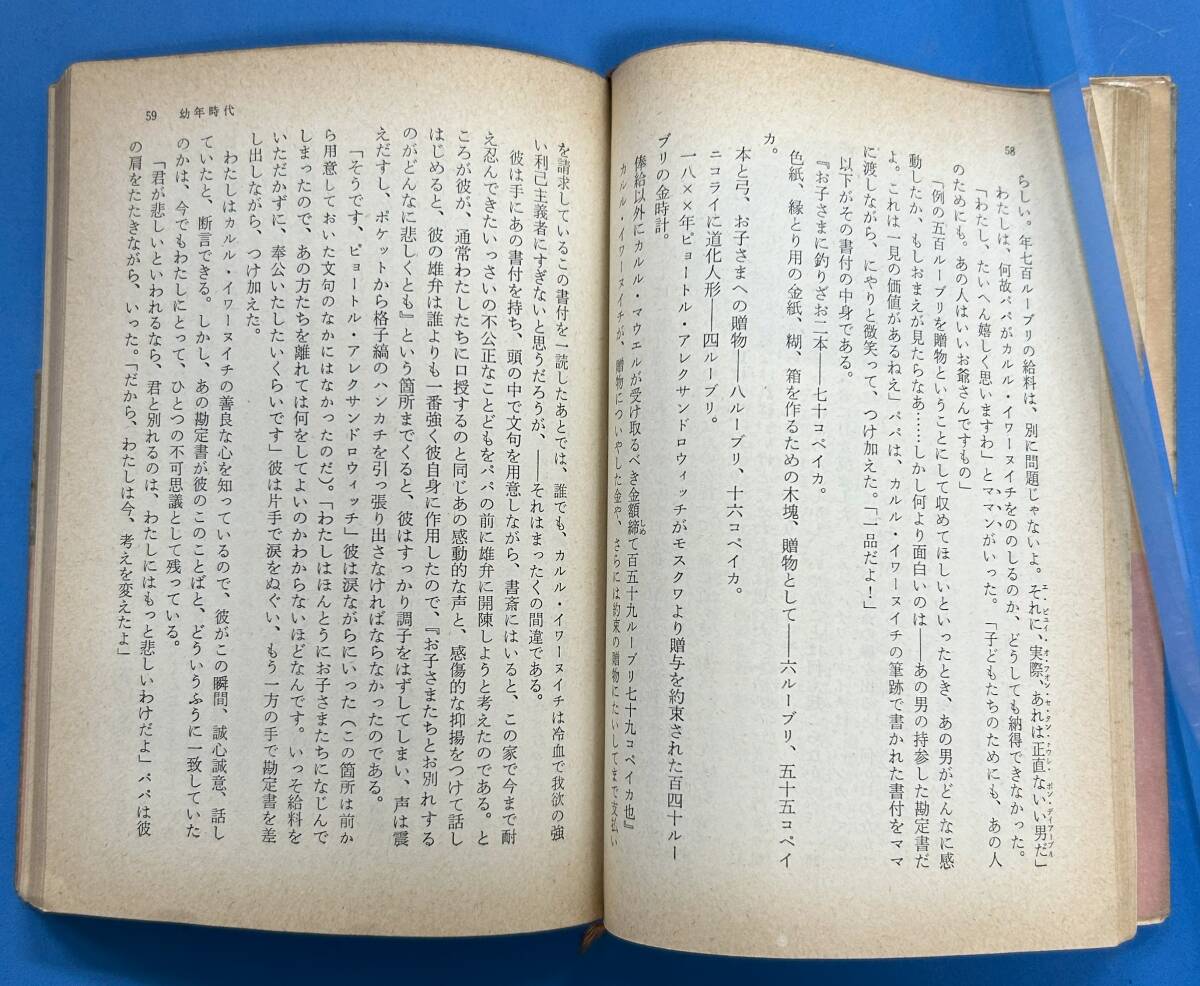 58
らしい。年七百ルーブリの給料は、別に問題じゃないよ。それに、実際、あれは正直ないい男だ」
わたしは、何故パパがカルル・イワーヌイチをののしるのか、どうしても納得できなかった。
「わたし、たいへん嬉しく思いますわ」とママンがいった。「子どもたちのためにも、あの人
のためにも。あの人はいいお爺さんですもの」
「例の五百ルーブリを贈物ということにして収めてほしいといったとき、あの男がどんなに感
動したか、もしおまえが見たらなあ……しかし何より面白いのは――あの男の持参した勘定書だ
よ。これは一見の価値があるねえ」パパは、カルル・イワーヌイチの筆跡で書かれた書付をママ
に渡しながら、にやりと微笑って、つけ加えた。「一品だよ！」
以下がその書付の中身である。
『お子さまに釣りざお二本――七十コペイカ。
色紙、縁とり用の金紙、糊、箱を作るための木塊、贈物として――六ルーブリ、五十五コペイ
カ。
本と弓、お子さまへの贈物――八ルーブリ、十六コペイカ。
ニコライに道化人形――四ルーブリ。
一八××年ピョートル・アレクサンドロウィッチがモスクワより贈与を約束された百四十ルー
ブリの金時計。
俸給以外にカルル・マウエルが受け取るべき金額締て百五十九ルーブリ七十九コペイカ也』
カルル・イワーヌイチが、贈物についやした金や、さらには約束の贈物にたいしてまで支払い
59 幼年時代
を請求しているこの書付を一読したあとでは、誰でも、カルル・イワーヌイチは冷血で我欲の強
い利己主義者にすぎないと思うだろうが、――それはまったくの間違である。
彼は手にあの書付を持ち、頭の中で文句を用意しながら、書斎にはいると、この家で今まで耐
え忍んできたいっさいの不公正なことどもをパパの前に雄弁に開陳しようと考えたのである。と
ころが彼が、通常わたしたちに口授するのと同じあの感動的な声と、感傷的な抑揚をつけて話し
はじめると、彼の雄弁は誰よりも一番強く彼自身に作用したので、『お子さまたちとお別れする
のがどんなに悲しくとも』という箇所までくると、彼はすっかり調子をはずしてしまい、声は震
えだすし、ポケットから格子縞のハンカチを引っ張り出さなければならなかったのである。
「そうです、ピョートル・アレクサンドロウィッチ」彼は涙ながらにいった（この箇所は前か
ら用意しておいた文句のなかにはなかったのだ）。「わたしはほんとうにお子さまたちになじんで
しまったので、あの方たちを離れては何をしてよいのかわからないほどなんです。いっそ給料を
いただかずに、奉公いたしたいくらいです」彼は片手で涙をぬぐい、もう一方の手で勘定書を差
し出しながら、つけ加えた。
わたしはカルル・イワーヌイチの善良な心を知っているので、彼がこの瞬間、誠心誠意、話し
ていたと、断言できる。しかし、あの勘定書が彼のこのことばと、どういうふうに一致していた
のかは、今でもわたしにとって、ひとつの不可思議として残っている。
「君が悲しいといわれるなら、君と別れるのは、わたしにはもっと悲しいわけだよ」パパは彼
の肩をたたきながら、いった。「だから、わたしは今、考えを変えたよ」